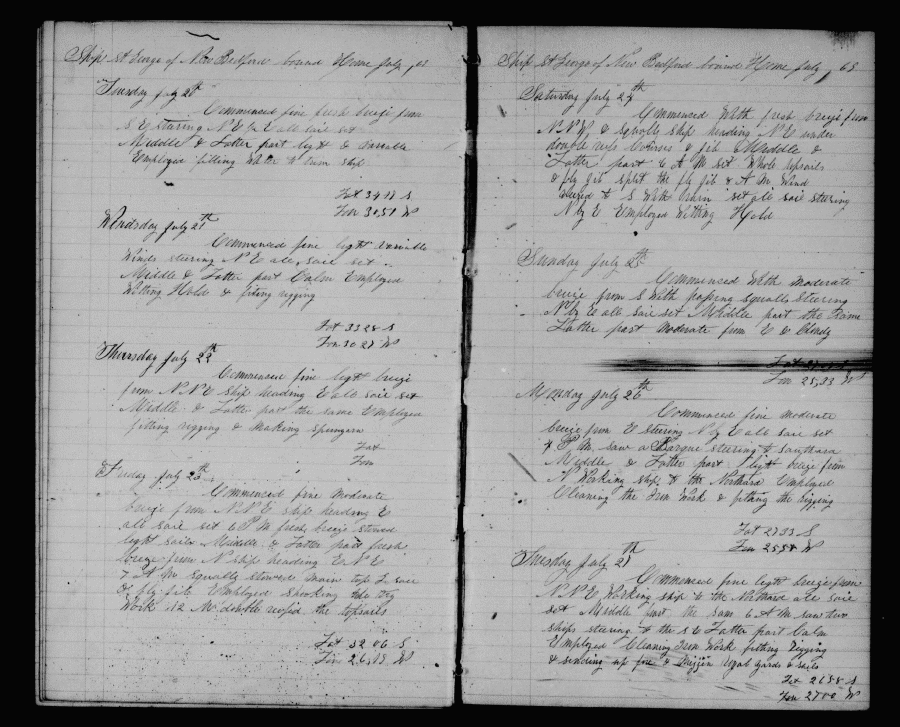 Ship St George of New Bedford bound Home July, 65
Tuesday July 20th
Commenced fine fresh breeze from
S E stering N E by E all sail set
Middle & Latter part light & variable
Employed fitting Water & ship
Lat 34 18 S
Lon 30 51 W
Wendsday July 21th
Commenced fine light variable
Winds steering N E all sail set
Middle & Latter part Calm Employed
Wetting Hold & fiting rigging
Lat 33 28 S
Lon 30 27 W
Thursday July 22th
Commenced fine light breeze
from N N E Ship heading E all sail set
Middle & Latter part the same Employed
fitting rigging & making spunyarn
Lat
Lon
Friday July 23th
Commenced fine moderate
breeze from N N E ship heading E
all sail set 6 P M fresh breeze stowed
light sails Middle & Latter part fresh
breeze from N ship heading E N E
7 A M squally stowed main top L sail
& fly jib Employed
Work 12 M double reefed the topsails
Lat 32 06 S
Lon 26 19 W
Ship St George of New Bedford bound Home July, 65
Saturday July 24th
Commenced With fresh breeze from
N N W & squally ship heading N E under
double reefs Courses & jib Middle &
Latter part 6 A M set Whole topsails
& fly jib split the fly jib 8 A M Wind
to S With Rain set all sail steering
N by E Employed Wetting Hold
Sunday July 25th
Commenced With moderate
breeze from S With squalls Steering
N by E all sail set Middle part the Same
Latter part moderate from E & Cloudy
Lat
Lon 25,33 W
Monday July 26th
Commenced fine moderate
breeze from E Steering N by E all sail set
4 P M saw a Barque steering to southard
Middle & Latter part light breeze from
N Working ship to the Northard Employed
Cleaning the Iron Work & fitting the rigging
Lat 27 33 S
Lon 25 58 W
Tuesday July 27th
Commenced fine light breeze from
N N E Working ship to the Northard all sail
set Middle part the same 6 A M saw two
ships steering to the S E Latter part Calm
Employed Cleaning Iron Work fitting Rigging
& sending up fore & Mizzen royal yards & sails
Lat 26 58 S
Lon 27 00 W